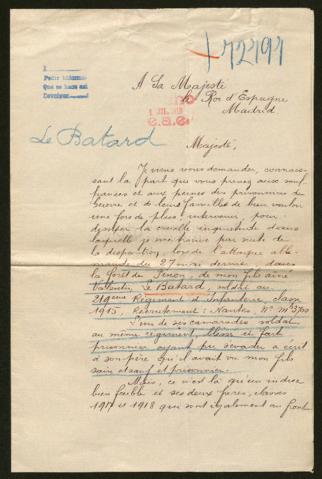 +72494
1
Pedir informes
Que se haga así
Devolver
A Sa Majesté
le Roi d'Espagne
Madrid
1 JUL. 1918
Le Batard
Majesté,
Je viens vous demander, connais-
sant la part que vous prenez aux souf-
frances et aux peines des prisonniers de
Guerre et de leurs familles de bien vouloir
une fois de plus intervenir, pour
dissiper la cruelle inquiétude dans
laquelle je me trouve par suite de
la disparition, lors de l'attaque alle-
mande du 27 mai dernier, dans
la forêt de Pinon, de mon fils aîné
Valentin Le Batard, soldat au
219ème Régiment d'Infanterie, classe
1915, Recrutement: Nantes, Nº Mle 3700
L'un de ses camarades soldat
au même régiment blessé et fait
prisonnier ayant pu s'évader a écrit
à son père qu'il avait vu mon fils
sain et sauf et prisonnier.
Mais, ce n'est là qu'un indice
bien faible et ses deux frères, classes
1917 et 1918 qui sont également au front